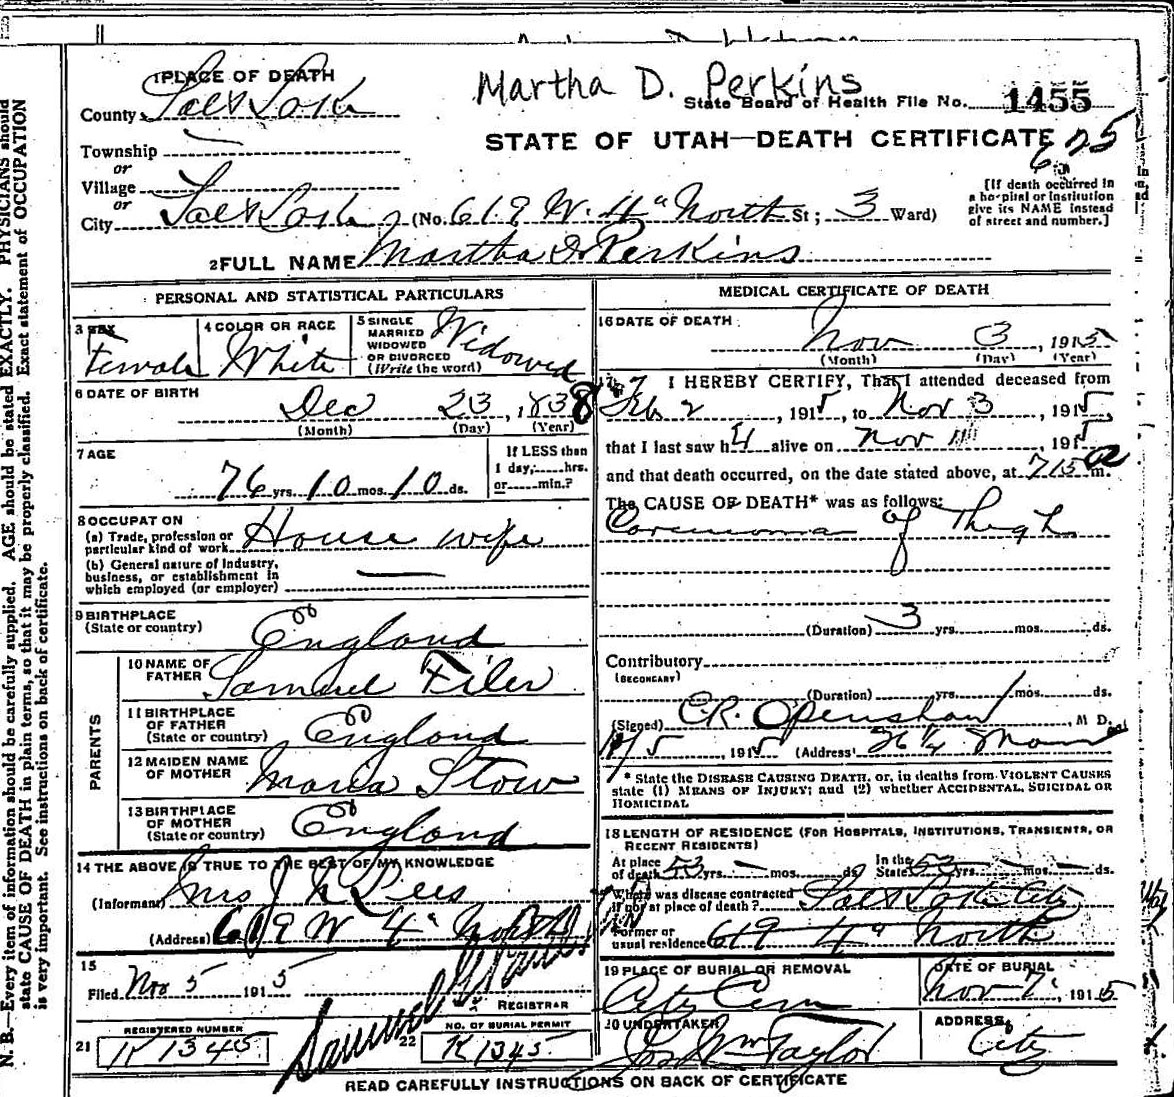 Martha D. Perkins
1 PLACE OF DEATH
State Board of Health File No. 1455
County Salt Lake
STATE OF UTAH—DEATH CERTIFICATE
675
Township
or
Village
or
City Salt Lake (No. 619 W. 4" North St; 3 Ward)
[If death occurred in
a hospital or institution
give its NAME instead
of street and number.]
2 FULL NAME Martha D Perkins
PERSONAL AND STATISTICAL PARTICULARS
3 SEX Female
4 COLOR OR RACE White
5 SINGLE
MARRIED
WIDOWED
OR DIVORCED
(Write the word) Widowed
6 DATE OF BIRTH
Dec 23, 1838
(Month) (Day) (Year)
7 AGE
76 yrs. 10 mos. 10 ds.
If LESS than
1 day, hrs.
or min.?
8 OCCUPATION
(a) Trade, profession or
particular kind of work House wife
(b) General nature of Industry,
business, or establishment in
which employed (or employer)
9 BIRTHPLACE
(State or country) England
PARENTS
10 NAME OF
FATHER Samuel Filer
11 BIRTHPLACE
OF FATHER
(State or country) England
12 MAIDEN NAME
OF MOTHER Maria Stow
13 BIRTHPLACE
OF MOTHER
(State or country) England
14 THE ABOVE IS TRUE TO THE BEST OF MY KNOWLEDGE
(Informant) Mrs J L Pees
(Address) 619 W 4" North
15
Filed Nov 5 1915
Samuel
REGISTRAR
REGISTERED NUMBER
21 K 1345
NO. OF BURIAL PERMIT
22 K 1345
MEDICAL CERTIFICATE OF DEATH
16 DATE OF DEATH
Nov 3, 1915
(Month) (Day) (Year)
17 I HEREBY CERTIFY, That I attended deceased from
Feb 2, 1915, to Nov 3, 1915,
that I last saw h alive on Nov 1915
and that death occurred, on the date stated above, at 715 a m.
The CAUSE OF DEATH* was as follows:
Carcinoma of Thigh
(Duration) 3 yrs. mos. ds.
Contributory
(SECONDARY)
(Duration) yrs. mos. ds.
(Signed) C.R. Openshaw, M D.
11/5, 1915 (Address) 26 1/2 Main
* State the DISEASE CAUSING DEATH, or, in deaths from VIOLENT CAUSES
state (1) MEANS OF INJURY; and (2) whether ACCIDENTAL, SUICIDAL OR
HOMICIDAL
18 LENGTH OF RESIDENCE (FOR HOSPITALS, INSTITUTIONS, TRANSIENTS, OR
RECENT RESIDENTS)
At place
of death 53 yrs. mos. ds.
In the
State 53 yrs. mos. ds.
Where was disease contracted
if not at place of death? Salt Lake City
Former or
usual residence 619 4" North
19 PLACE OF BURIAL OR REMOVAL
City Cem
DATE OF BURIAL
Nov 7, 1915
20 UNDERTAKER
Jos Wm Taylor
ADDRESS
City
READ CAREFULLY INSTRUCTIONS ON BACK OF CERTIFICATE
N. B. Every item of information should be carefully supplied. AGE should be stated EXACTLY. PHYSICIANS should
state CAUSE OF DEATH in plain terms, so that it may be properly classified. Exact statement of OCCUPATION
is very important. See instructions on back of certificate.